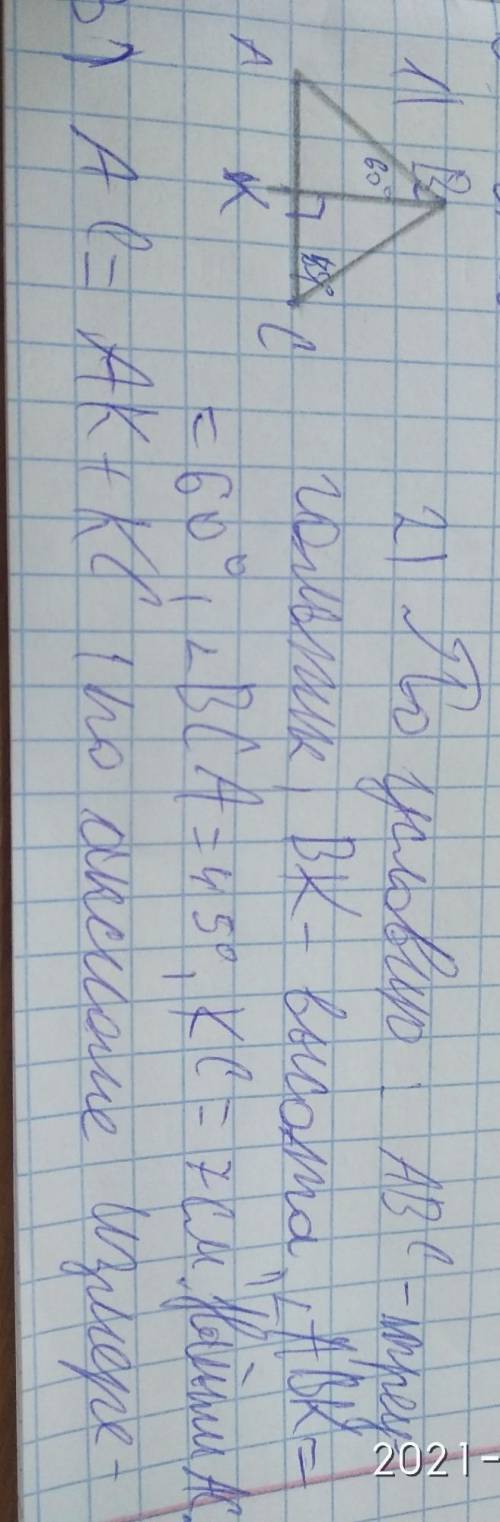 1)
B
60°
45°
A
K
C
2) По условию: ABC - треу
гольник, BK - высота, ∠ABK =
= 60°, ∠BCA = 45°, KC = 7см. Найти AC.
3) AC = AK + KC (по аксиоме измере-
2021-